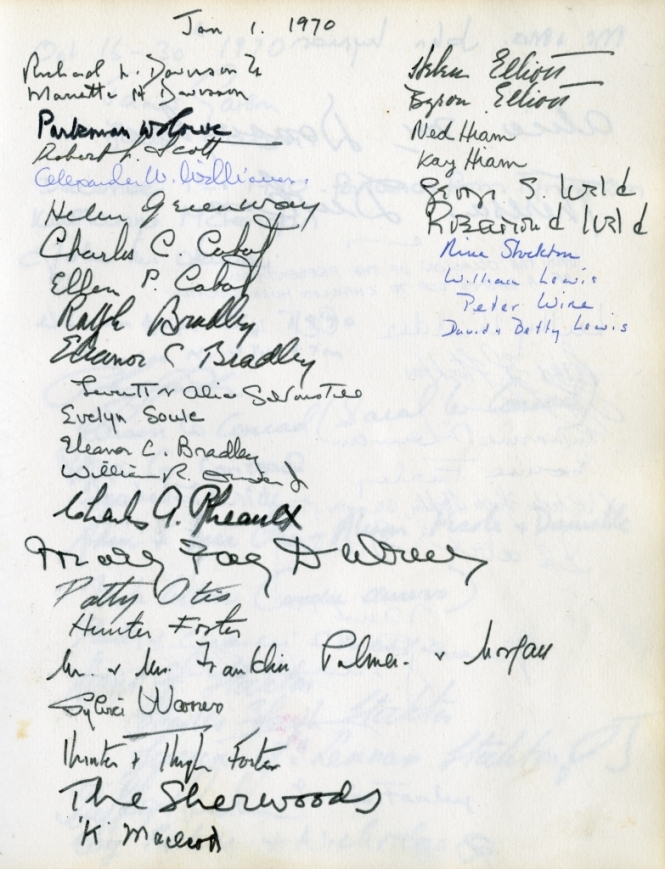 Jan 1. 1970
Richard L. Davisson Jr
Marietta H Davisson
Parkman
Robert L. Scott
Alexander W. Williams
Helen Greenway
Charles C. Cabot
Ellen P. Cabot
Ralph Bradley
Eleanor C Bradley
& Alice
Evelyn Soule
Eleanor C. Bradley
William R.
Charles G. Rheault
Mary Fay
Patty Otis
Hunter Foster
Mr. & Mrs. Franklin Palmer. & Morgan
Sylvia Warner
Hunter & Hugh Foster
The Sherwoods
"K" Macleod
Helen Elliott
Byron Elliott
Ned Hiam
Kay Hiam
George B Weld
Rosamond Weld
Nina Stockton
William Lewis
Peter Wine
David & Betty Lewis